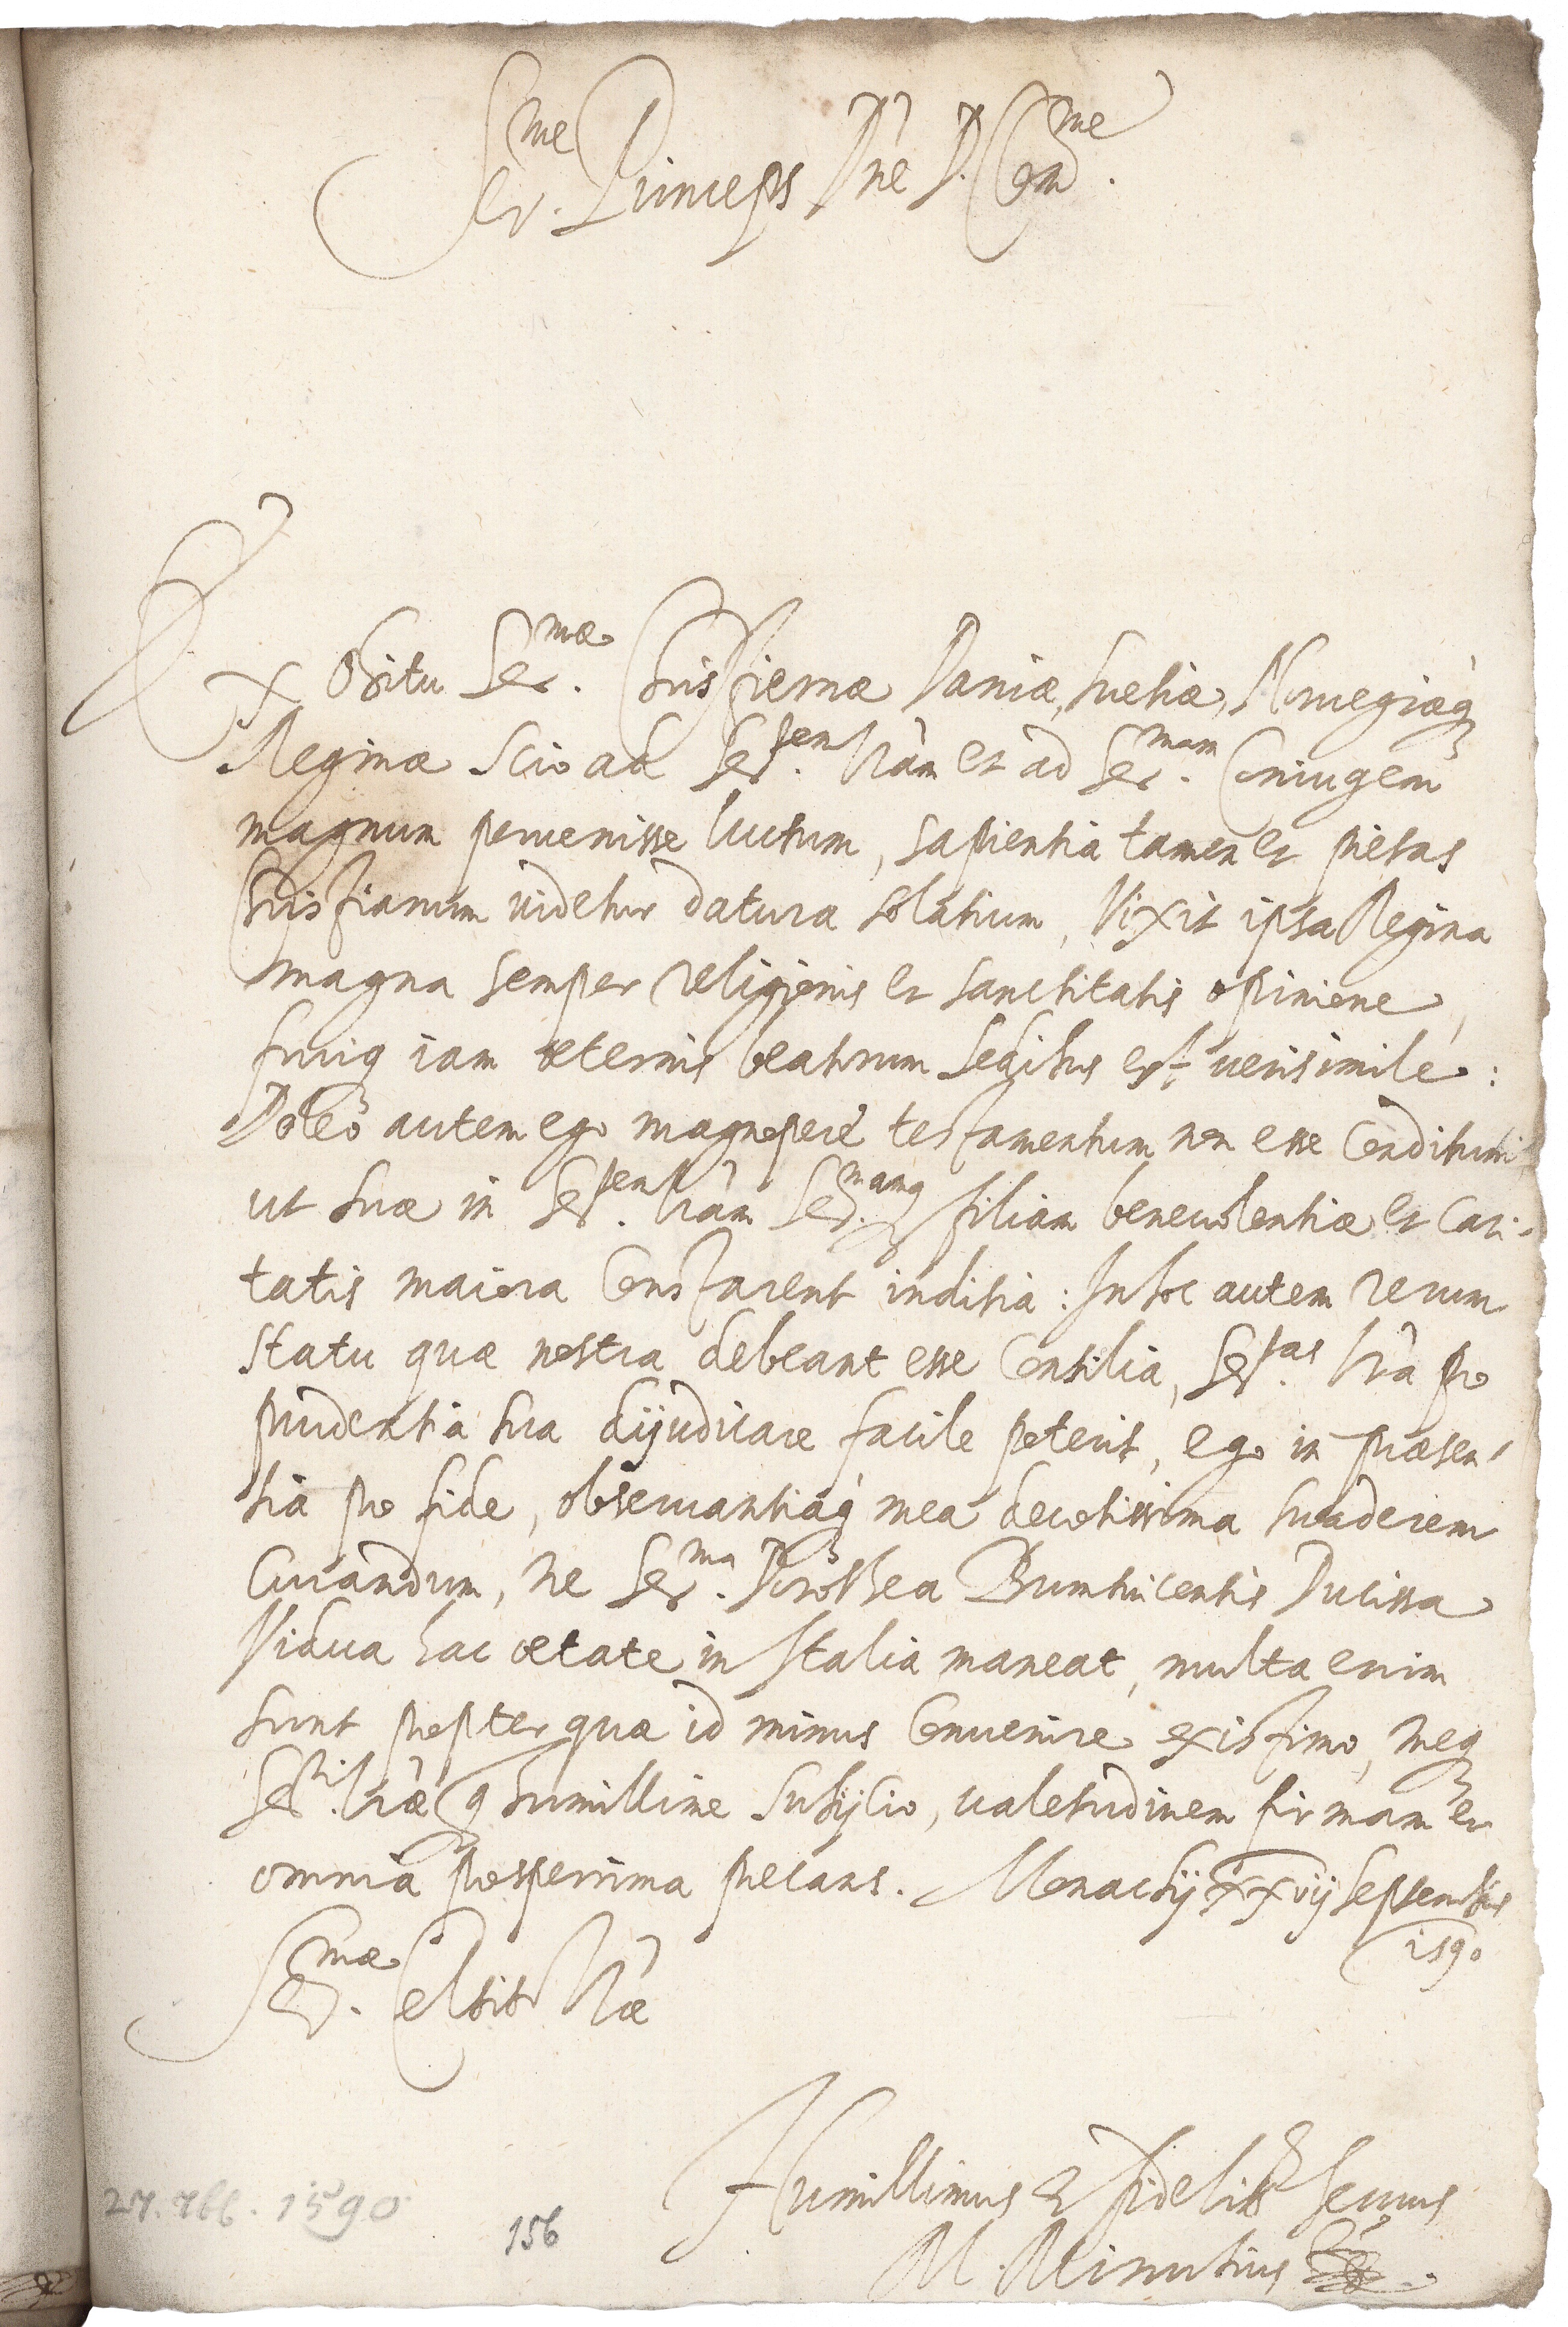 Ser.me Princeps Dne D. Clem.me
Ex Obitu Ser.mæ Christiernæ Daniæ, Suetiæ, Noruegiæq
Reginæ scio ad Ser.tem Vram et ad Ser.mam Coniugem
magnum peruenisse luctum, sapientia tamen et pietas
Christianum videtur datura solatium, Vixit ipsa Regina
magna semper religionis et sanctitatis opinione,
fruiq iam æternis beatorum sedibus est uerisimile:
Doleo autem ego magnopere testamentum non esse Conditum
ut suæ in Ser.tem Vram Ser.mamq filiam beneuolentiæ et Cari-
tatis maiora Constarent inditia: In hoc autem rerum
statu quæ nostra debeant esse Consilia, Ser.tas Vra pro
prudentia sua dijudicare facile poterit, ego in præsen-
tia pro fide, obseruantiaq mea deuotissima suaderem
Curandum, ne Ser.ma Dorothea Brunsuicensis Ducissa
Vidua hac ætate in Italia maneat, multa enim
sunt propter quæ id minus Conuenire existimo, meq
Ser.ti Vræ q humillime subijcio, ualetudinem firmam et
omnia prosperrima precans. Monachij xxvij Septembris
1590
Ser.mæ Celsit Vræ
Humillimus & fidelis seruus
M. Minutius
27. 7bb. 1590
156